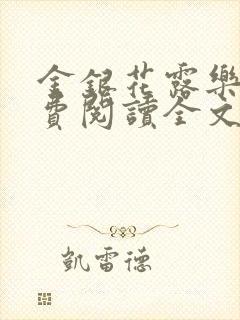 金銀花露樂
費閱讀全文
凱雷德